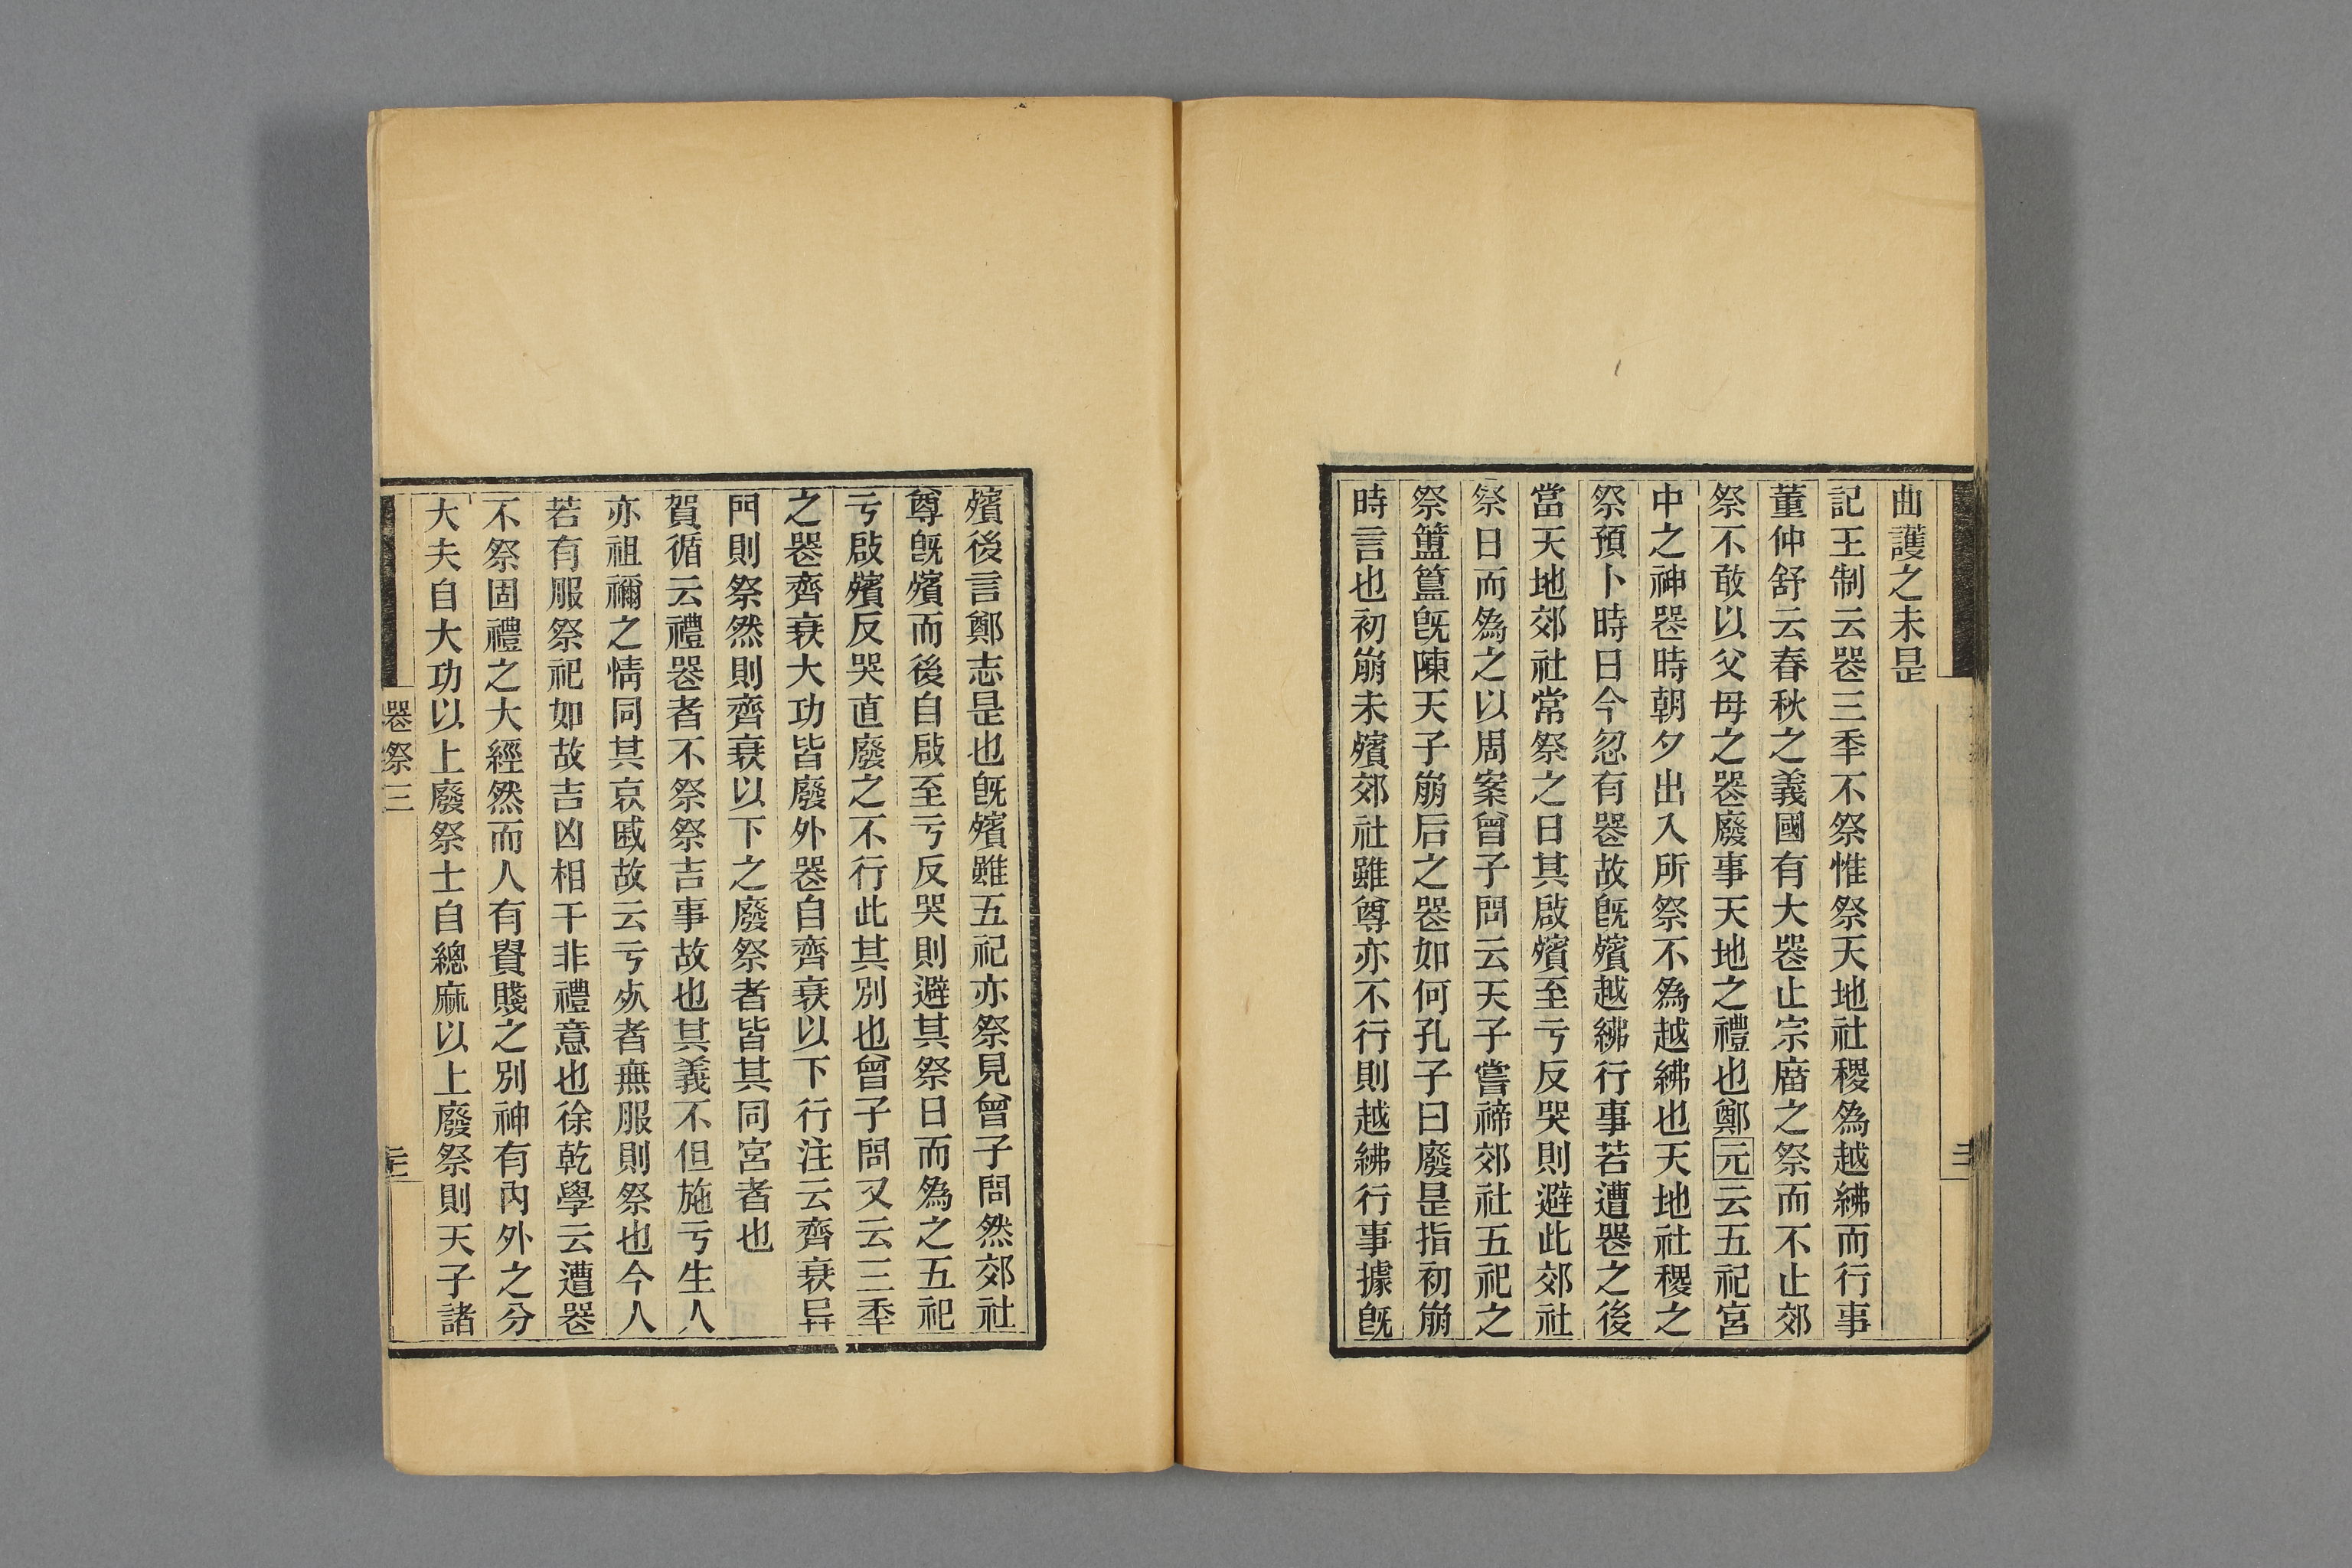 曲護之未昰
記王制云器三秊不祭惟祭天地社稷為越紼而行事
董仲舒云春秋之義國有大器止宗庿之祭而不止郊
祭不敢以父母之器廢事天地之禮也鄭元云五祀宮
中之神器時朝夕出入所祭不為越紼也天地社稷之
祭預卜時日今忽有器故旣殯越紼行事若遭器之後
當天地郊社常祭之日其啟殯至亏反哭則避此郊社
祭日而為之以周案曾子問云天子嘗禘郊社五祀之
祭簠簋旣陳天子崩后之器如何孔子曰廢昰指初崩
時言也初崩未殯郊社雖尊亦不行則越紼行事據旣
殯後言鄭志昰也旣殯雖五祀亦祭見曾子問然郊社
尊旣殯而後自啟至亏反哭則避其祭日而為之五祀
亏啟殯反哭直廢之不行此其別也曾子問又云三秊
之器齊衰大功皆廢外器自齊衰以下行注云齊衰异
門則祭然則齊衰以下之廢祭者皆其同宮者也
賀循云禮器者不祭祭吉事故也其義不但施亏生人
亦祖禰之情同其哀戚故云亏𣦸者無服則祭也今人
若有服祭祀如故吉凶相干非禮意也徐乾學云遭器
不祭固禮之大經然而人有貴賤之別神有內外之分
大夫自大功以上廢祭士自緦麻以上廢祭則天子諸
器祭三